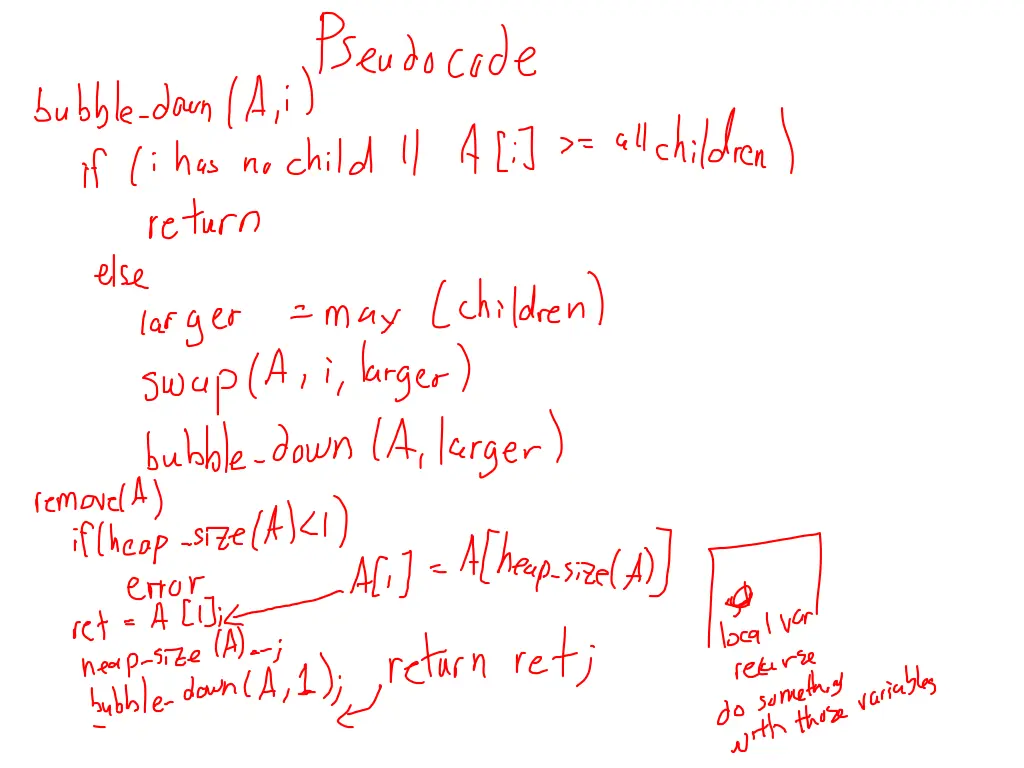 Pseudocode
bubble_down(A,i)
if (i has no child || A[i] >= all children)
return
else
larger = max (children)
swap(A, i, larger)
bubble_down(A, larger)
remove(A)
if(heap_size(A)<1)
error
A[i] = A[heap_size(A)]
ret = A[1];
heap_size(A)--;
bubble_down(A,1);
return ret;
local var
recurse
do something
with those variables